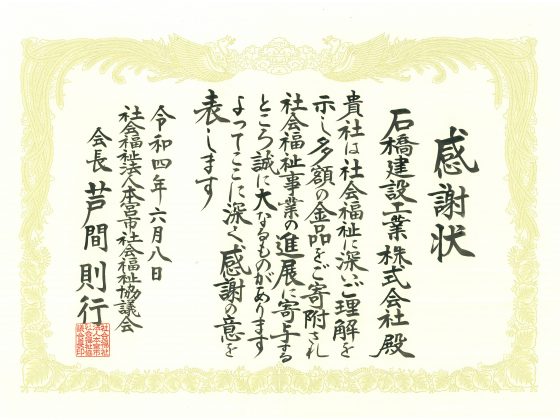 感謝状
石橋建設工業株式会社殿
貴社は社会福祉に深いご理解を
示し多額の金品をご寄附され
社会福祉事業の進展に寄与する
ところ誠に大なるものがあります
よってここに深く感謝の意を
表します
令和四年六月八日
社会福祉法人本宮市社会福祉協議会
会長 芦間則行